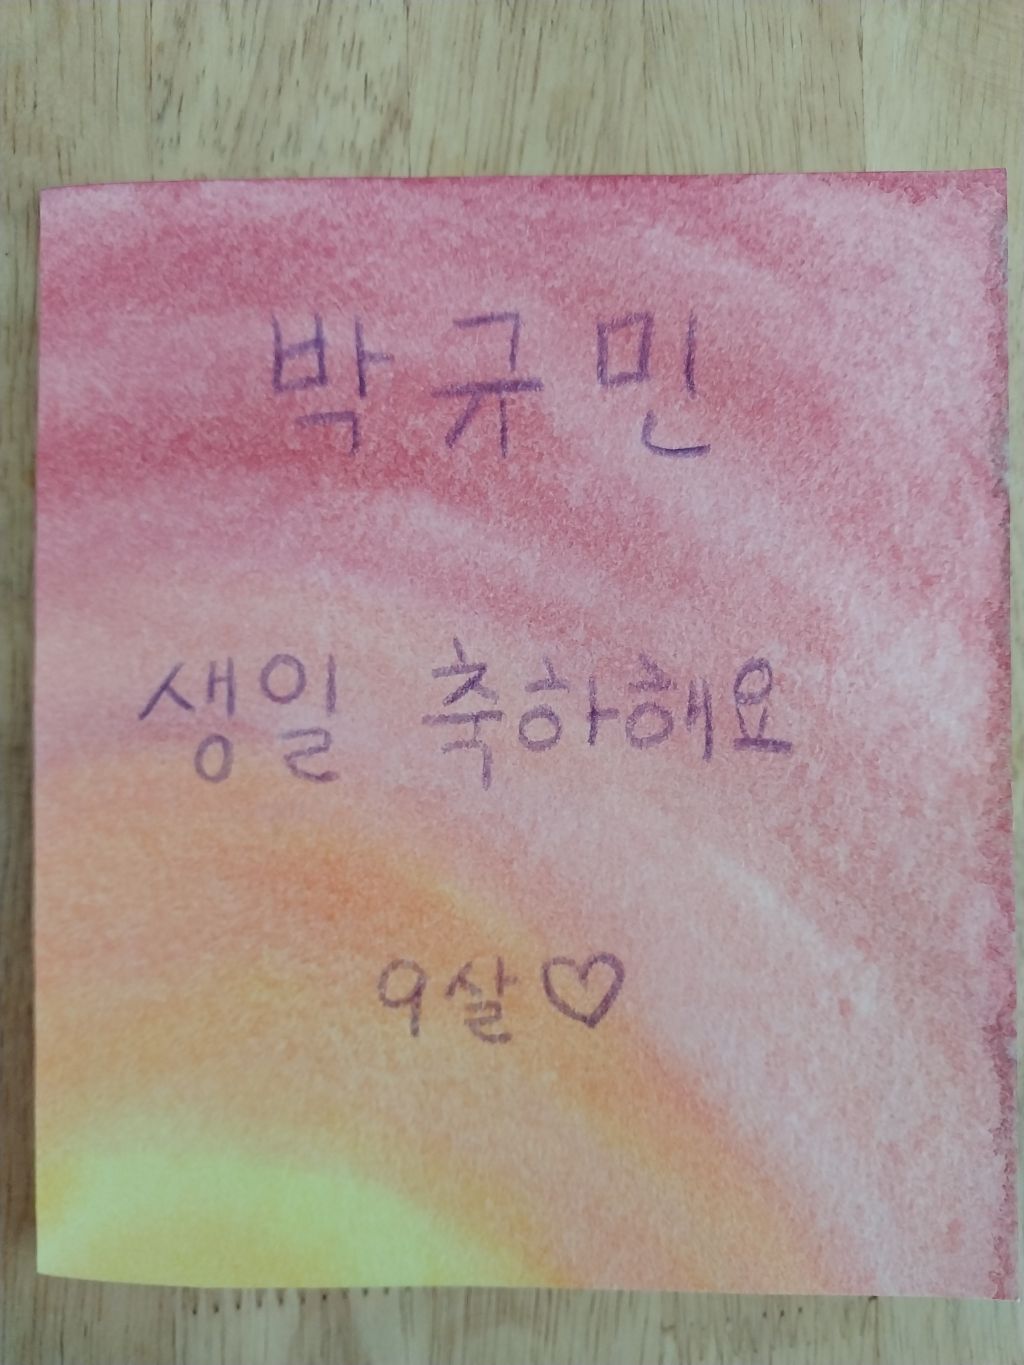 박규민
생일 축하해요
9살♡